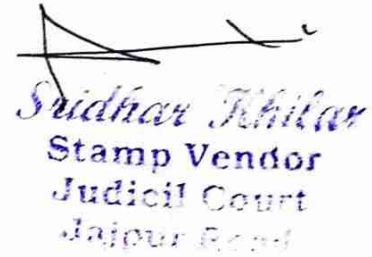 Sridhar Khilar
Stamp Vendor
Judicil Court
Jajpur Road